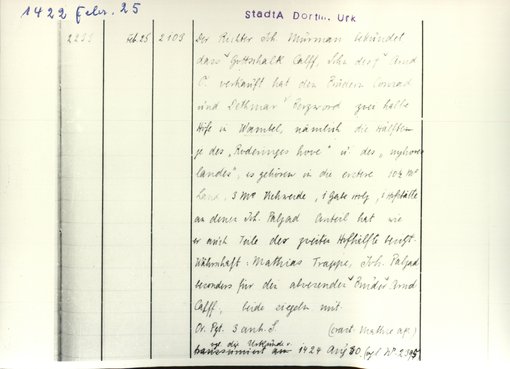 1422 Febr. 25
StadtA Dortm. Urk
Feb. 25 2103 Der Richter Joh. Murman bekundet
dass Gottschalk Calff, Sohn des Arnd
C. verkauft hat den Brüdern Conrad
und Dethmar Berswordt zwei halbe
Höfe in Wambel, nämlich die Hälften
je des
landes", es gehören in die erstere 10½ M
Land, 3 M Viehweide, 1 Gate Holz, 1 Hofstätte
an denen Joh. Palzad Anteil hat wie
er auch Teile der zweiten Hofhälfte besitzt.
Währshaft: Mathias Trappe, Joh. Palzad
besonders für den abwesenden Bruder Arnd
Calff, beide siegeln mit
Or. Pgt. 3 anh. S.
vgl. die Urkunde v.
transsumiert am 1424 Aug 30 (vgl. Nr. 2195)